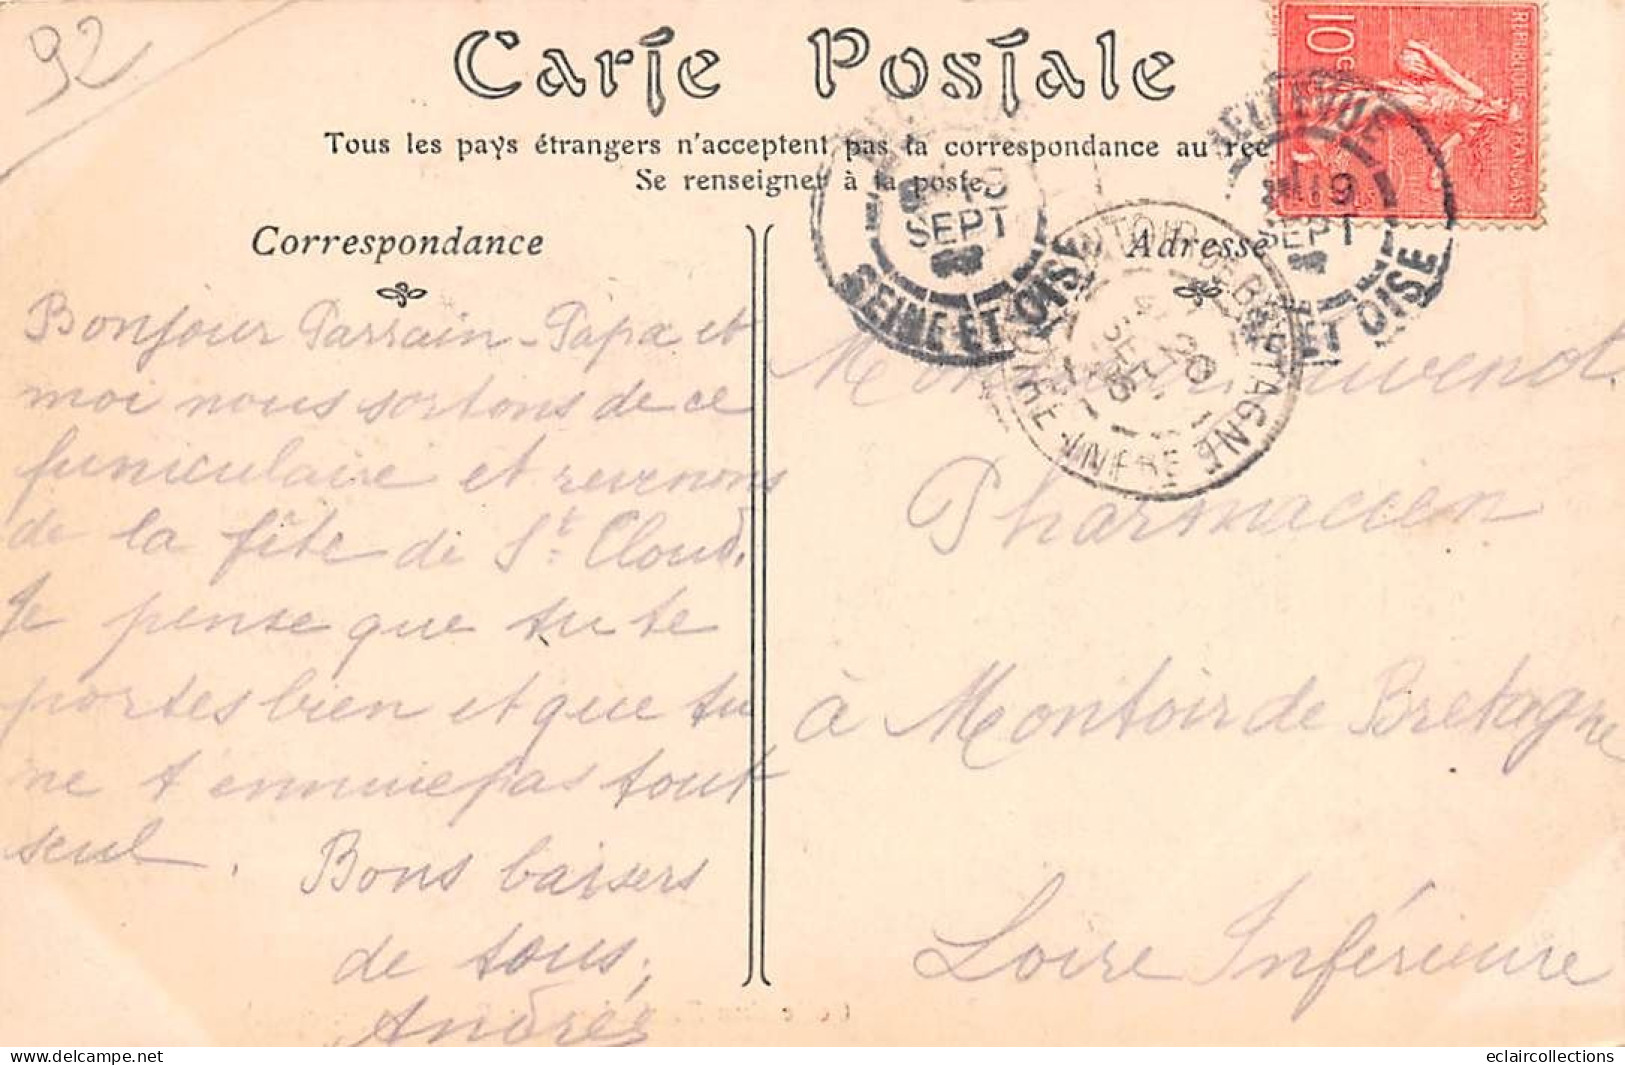 92
Carte Postale
Tous les pays étrangers n'acceptent pas la correspondance au rec
Se renseigner à la poste
Correspondance
Adresse
10 c
REPUBLIQUE FRANÇAISE
SEPT
SEINE ET OISE
BELLEVUE
19
SEPT
ET OISE
MONTOIR DE BRETAGNE
20
SEPT
LOIRE INFRE
Bonjour Parrain - Papa et
moi nous sortons de ce
funiculaire et revenons
de la fête de St. Cloud.
Je pense que tu te
portes bien et que tu
ne t'ennuie pas tout
seul.
Bons baisers
de tous,
André
Pharmacien
à Montoir de Bretagne
Loire Inférieure
eclaircollections
www.delcampe.net